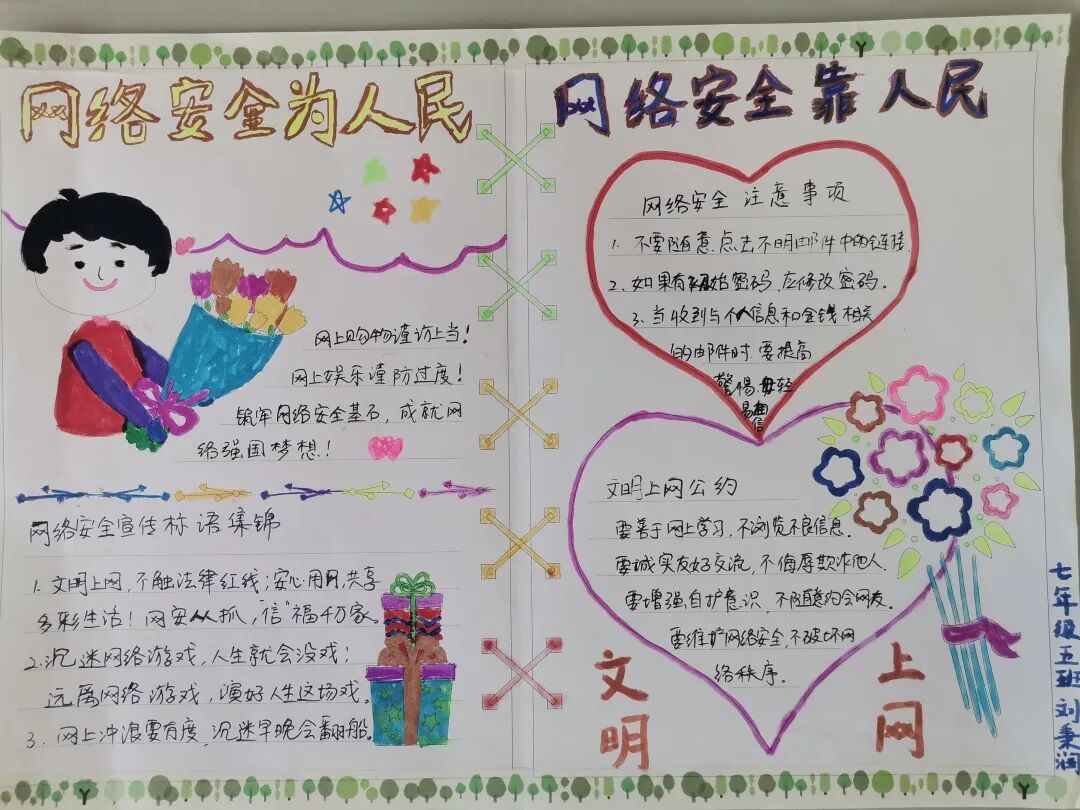 网络安全为人民
网上购物谨访上当!
网上娱乐谨防过度!
筑牢网络安全基石,成就网
络强国梦想!
网络安全宣传标语集锦
1.文明上网,不触法律红线;安心用网,共享
多彩生活!网安人人抓,“信”福千万家。
2.沉迷网络游戏,人生就会没戏;
远离网络游戏,演好人生这场戏。
3.网上冲浪要有度,沉迷早晚会翻船。
网络安全靠人民
网络安全 注意事项
1.不要随意点击不明邮件中的链接
2.如果有初始密码,应修改密码。
3.当收到与个人信息和金钱相关
的邮件时要提高
警惕,毋轻
易相
信
文明上网公约
要善于网上学习,不浏览不良信息。
要诚实友好交流,不侮辱欺诈他人.
要增强自护意识,不随意约会网友。
要维护网络安全,不破坏网
络秩序。
文明
上网
七年级五班刘秉润